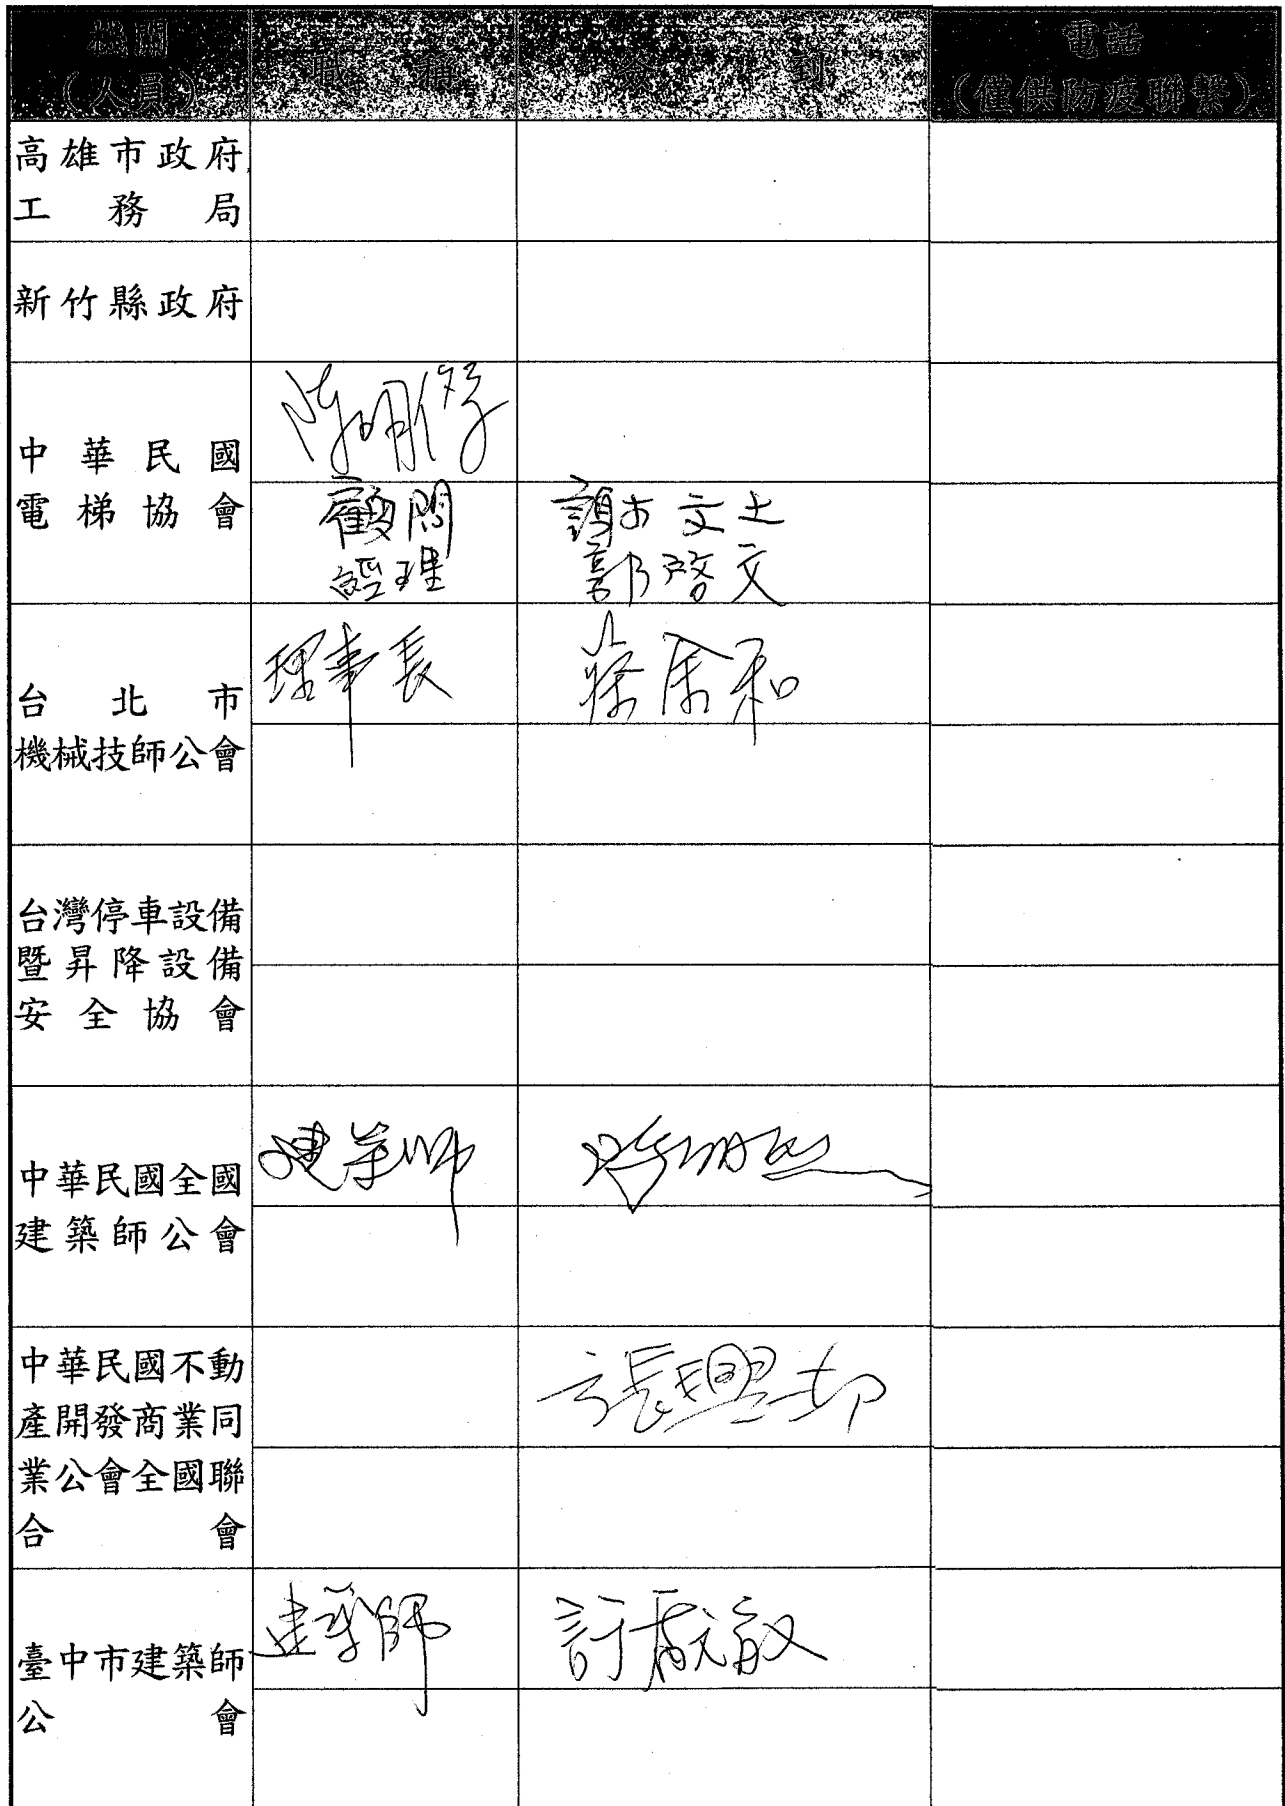 機關
(人員)
職稱
簽到
電話
(僅供防疫聯繫)
高雄市政府
工務局
新竹縣政府
中華民國
電梯協會
陳明修
顧問 謝文士
經理 郭啓文
台北市
機械技師公會
理事長
台灣停車設備
暨昇降設備
安全協會
中華民國全國
建築師公會
建築師
中華民國不動
產開發商業同
業公會全國聯
合會
張興邦
臺中市建築師
公會
建築師